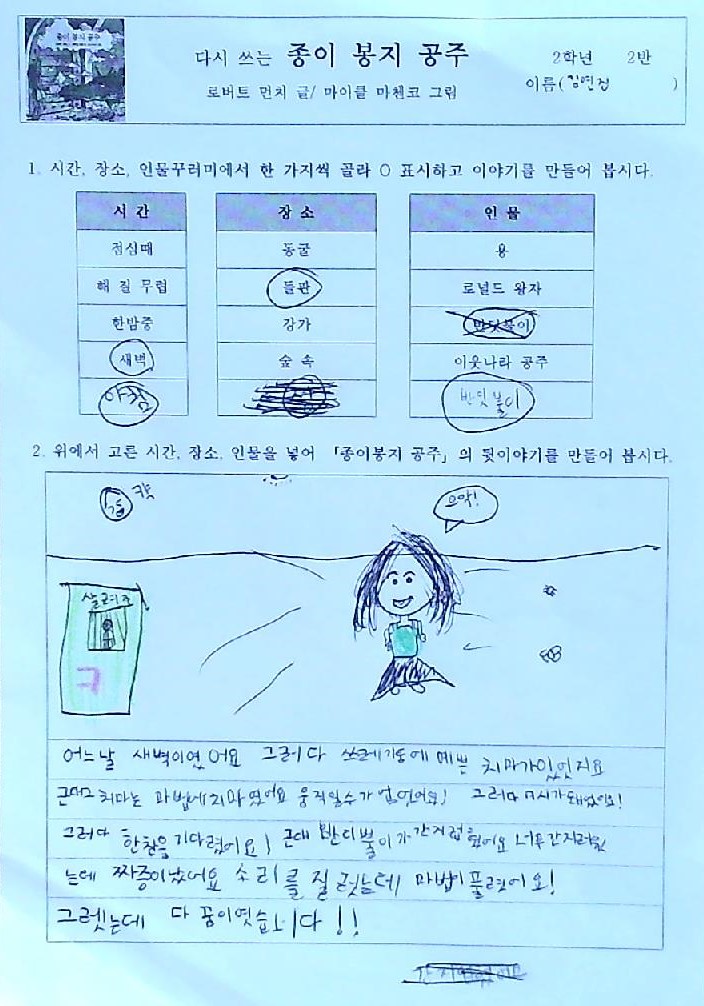 종이 봉지 공주
다시 쓰는 종이 봉지 공주
2학년 2반
로버트 먼치 글/ 마이클 마첸코 그림
이름(김연정 )
1. 시간, 장소, 인물꾸러미에서 한 가지씩 골라 O 표시하고 이야기를 만들어 봅시다.
시 간 장 소 인 물
점심때 동굴 용
해 질 무렵 들판 로널드 왕자
한밤중 강가 반딧불이
새벽 숲 속 이웃나라 공주
아침 반딧불이
2. 위에서 고른 시간, 장소, 인물을 넣어 「종이봉지 공주」의 뒷이야기를 만들어 봅시다.
으악!
살려줘
어느날 새벽이였어요 그러다 쓰레기통에 예쁜 치마가있었지요
근데그 치마는 마법에 걸렸어요 움직일수가 없었어요! 그러다 시가 돼었어요!
그러다 한참을 기다렸어요! 근데 반디뿔이가 간지럽혔어요 너무간지러웠
는데 짜증이났어요 소리를 질렀는데 마법이 풀렸어요!
그렛는데 다 꿈이엿습니다!!